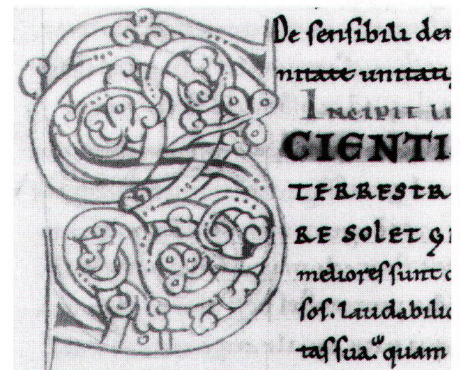 De sensibili de
nitate unitati
Incipit li
SCIENTI
TERRESTR
RE SOLET
meliores sunt
sos. laudabilio
tas sua. quam